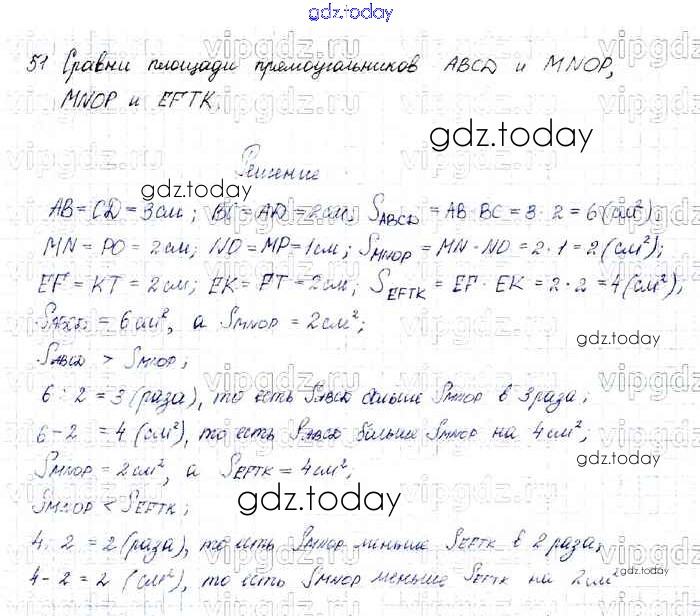 gdz.today
51 Сравни площади прямоугольников ABCD и MNOP,
MNOP и EFTK.
gdz.today
Решение
gdz.today
AB = CD = 3 см; BC = AD = 2 см; S ABCD = AB · BC = 3 · 2 = 6 (см²);
MN = PO = 2 см; NO = MP = 1 см; S MNOP = MN · NO = 2 · 1 = 2 (см²);
EF = KT = 2 см; EK = FT = 2 см; S EFTK = EF · EK = 2 · 2 = 4 (см²);
S ABCD = 6 см², а S MNOP = 2 см²;
gdz.today
S ABCD > S MNOP;
6 : 2 = 3 (раза), то есть S ABCD больше S MNOP в 3 раза;
6 - 2 = 4 (см²), то есть S ABCD больше S MNOP на 4 см²;
S MNOP = 2 см², а S EFTK = 4 см²;
gdz.today
S MNOP < S EFTK;
4 : 2 = 2 (раза), то есть S MNOP меньше S EFTK в 2 раза;
4 - 2 = 2 (см²), то есть S MNOP меньше S EFTK на 2 см²
gdz.today
vipgdz.ru